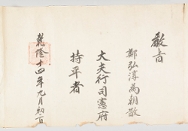 教旨
鄭弘淳為朝散
大夫行司憲府
持平者
乾隆十四年九月初一日